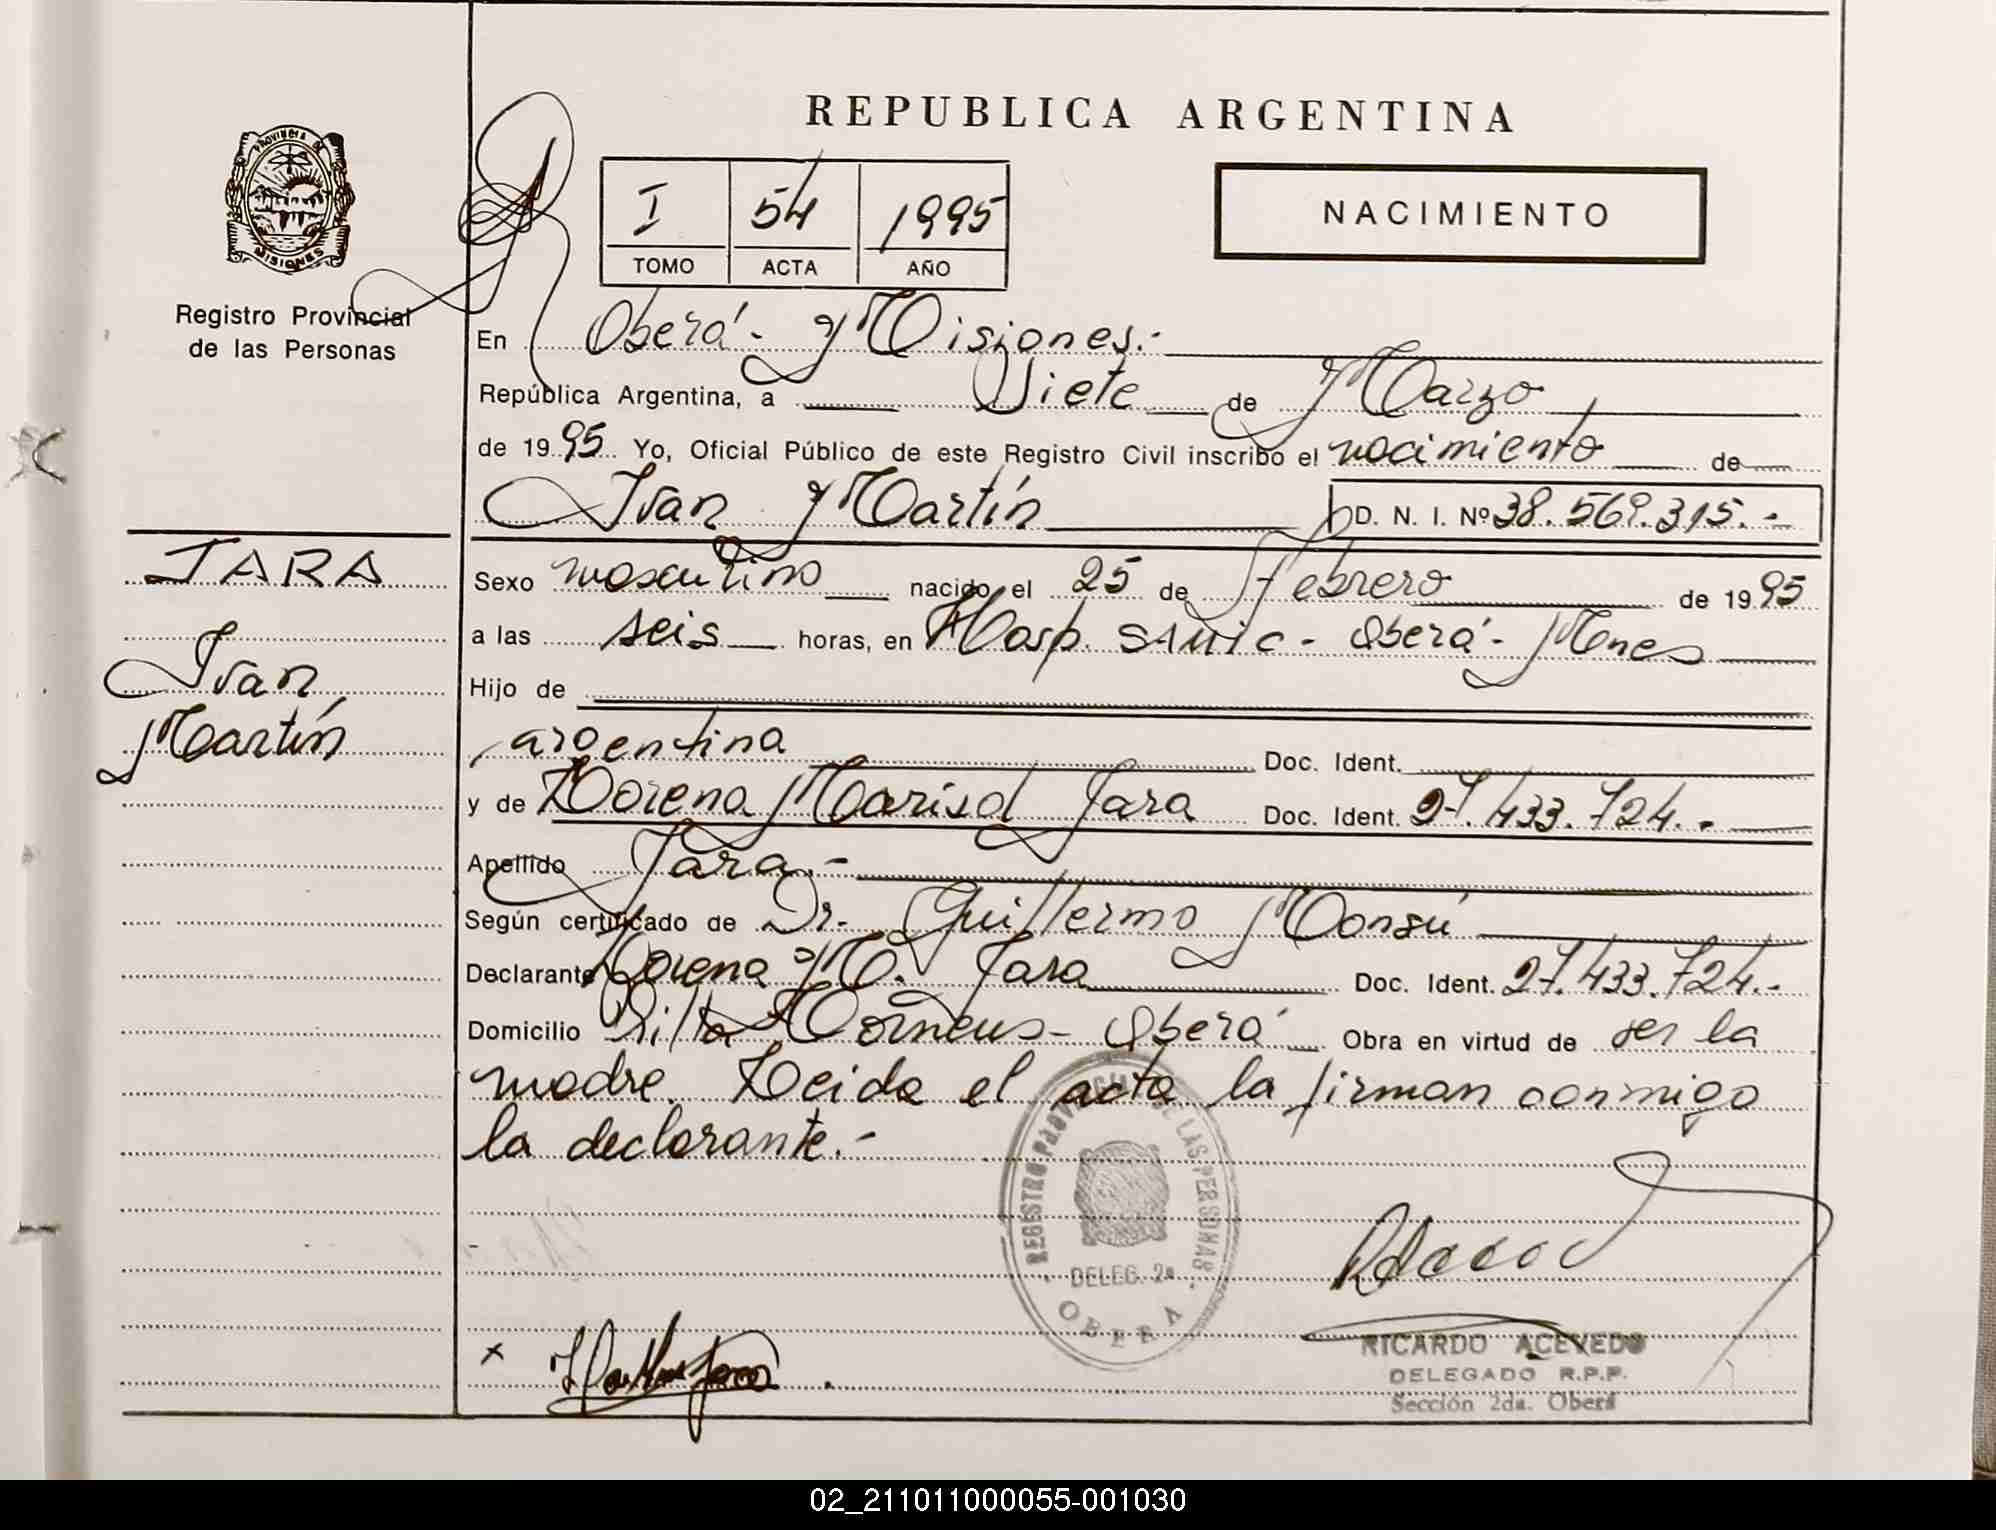 REPUBLICA ARGENTINA
PROVINCIA DE
MISIONES
Registro Provincial
de las Personas
I 54 1995
TOMO ACTA AÑO
NACIMIENTO
En Oberá - Misiones.-
República Argentina, a Siete de Marzo
de 1995 Yo, Oficial Público de este Registro Civil inscribo el nacimiento de
Ivan Martín D. N. I. Nº 38.569.315.-
JARA
Ivan
Martín
Sexo masculino nacido el 25 de febrero de 1995
a las seis horas, en Hosp. SAMIC - Oberá - Mnes
Hijo de
argentina Doc. Ident.
y de Lorena Marisol Jara Doc. Ident. 27.433.724.-
Apellido Jara.-
Según certificado de Dr. Guillermo Monsú
Declarante Lorena M. Jara Doc. Ident. 27.433.724.-
Domicilio Villa - Oberá Obra en virtud de ser la
madre. Leida el acta la firman conmigo
la declarante.-
REGISTRO PROVINCIAL DE LAS PERSONAS
DELEG. 2a
OBERA
x
RICARDO ACEVEDO
DELEGADO R.P.P.
Sección 2da. Oberá
02_211011000055-001030